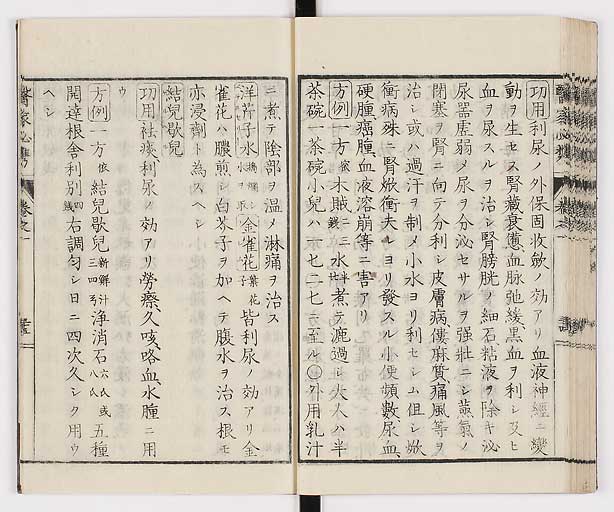 功用利尿ノ外保固收斂ノ効アリ血液神經ニ變
動ヲ生セス腎藏衰憊血脉弛緩黒血ヲ利シ及ヒ
血ヲ尿スルヲ治シ腎膀胱ヲ細石粘液ヲ除キ泌
尿器虚弱ノ尿ヲ分泌セサルヲ強壯ニシ蒸氣ノ
閉塞ヲ腎ニ向テ分利シ皮膚病僂麻質痛風等ヲ
治シ或ハ過汗ヲ制メ小水ヨリ利セシム但シ焮
衝病殊ニ腎焮衝夫ルヨリ發スル小便頻數尿血
硬腫癌腫血液溶崩等ニ害アリ
方例一方木賊二三水半煮テ漉過シ大人ハ半
茶碗一茶碗小兒ハ七二七ニ至ル外用乳汁
ニ煮テ陰部ヲ温メ淋痛ヲ治ス
洋芹子水金雀花皆利尿ノ効アリ金
雀花ハ膿煎シ白芥子ヲ加ヘテ腹水ヲ治ス根モ
亦浸劑ト為スヘシ
結兒歇兒
功用袪痰利尿ノ効アリ勞瘵久咳咯血水腫ニ用
ウ
方例一方依結兒歇兒新鮮汁三四弓浄消石六氏或八氏五種
開達根舎利別四錢右調匀シ日ニ四次久シク用ウ
ヘシ